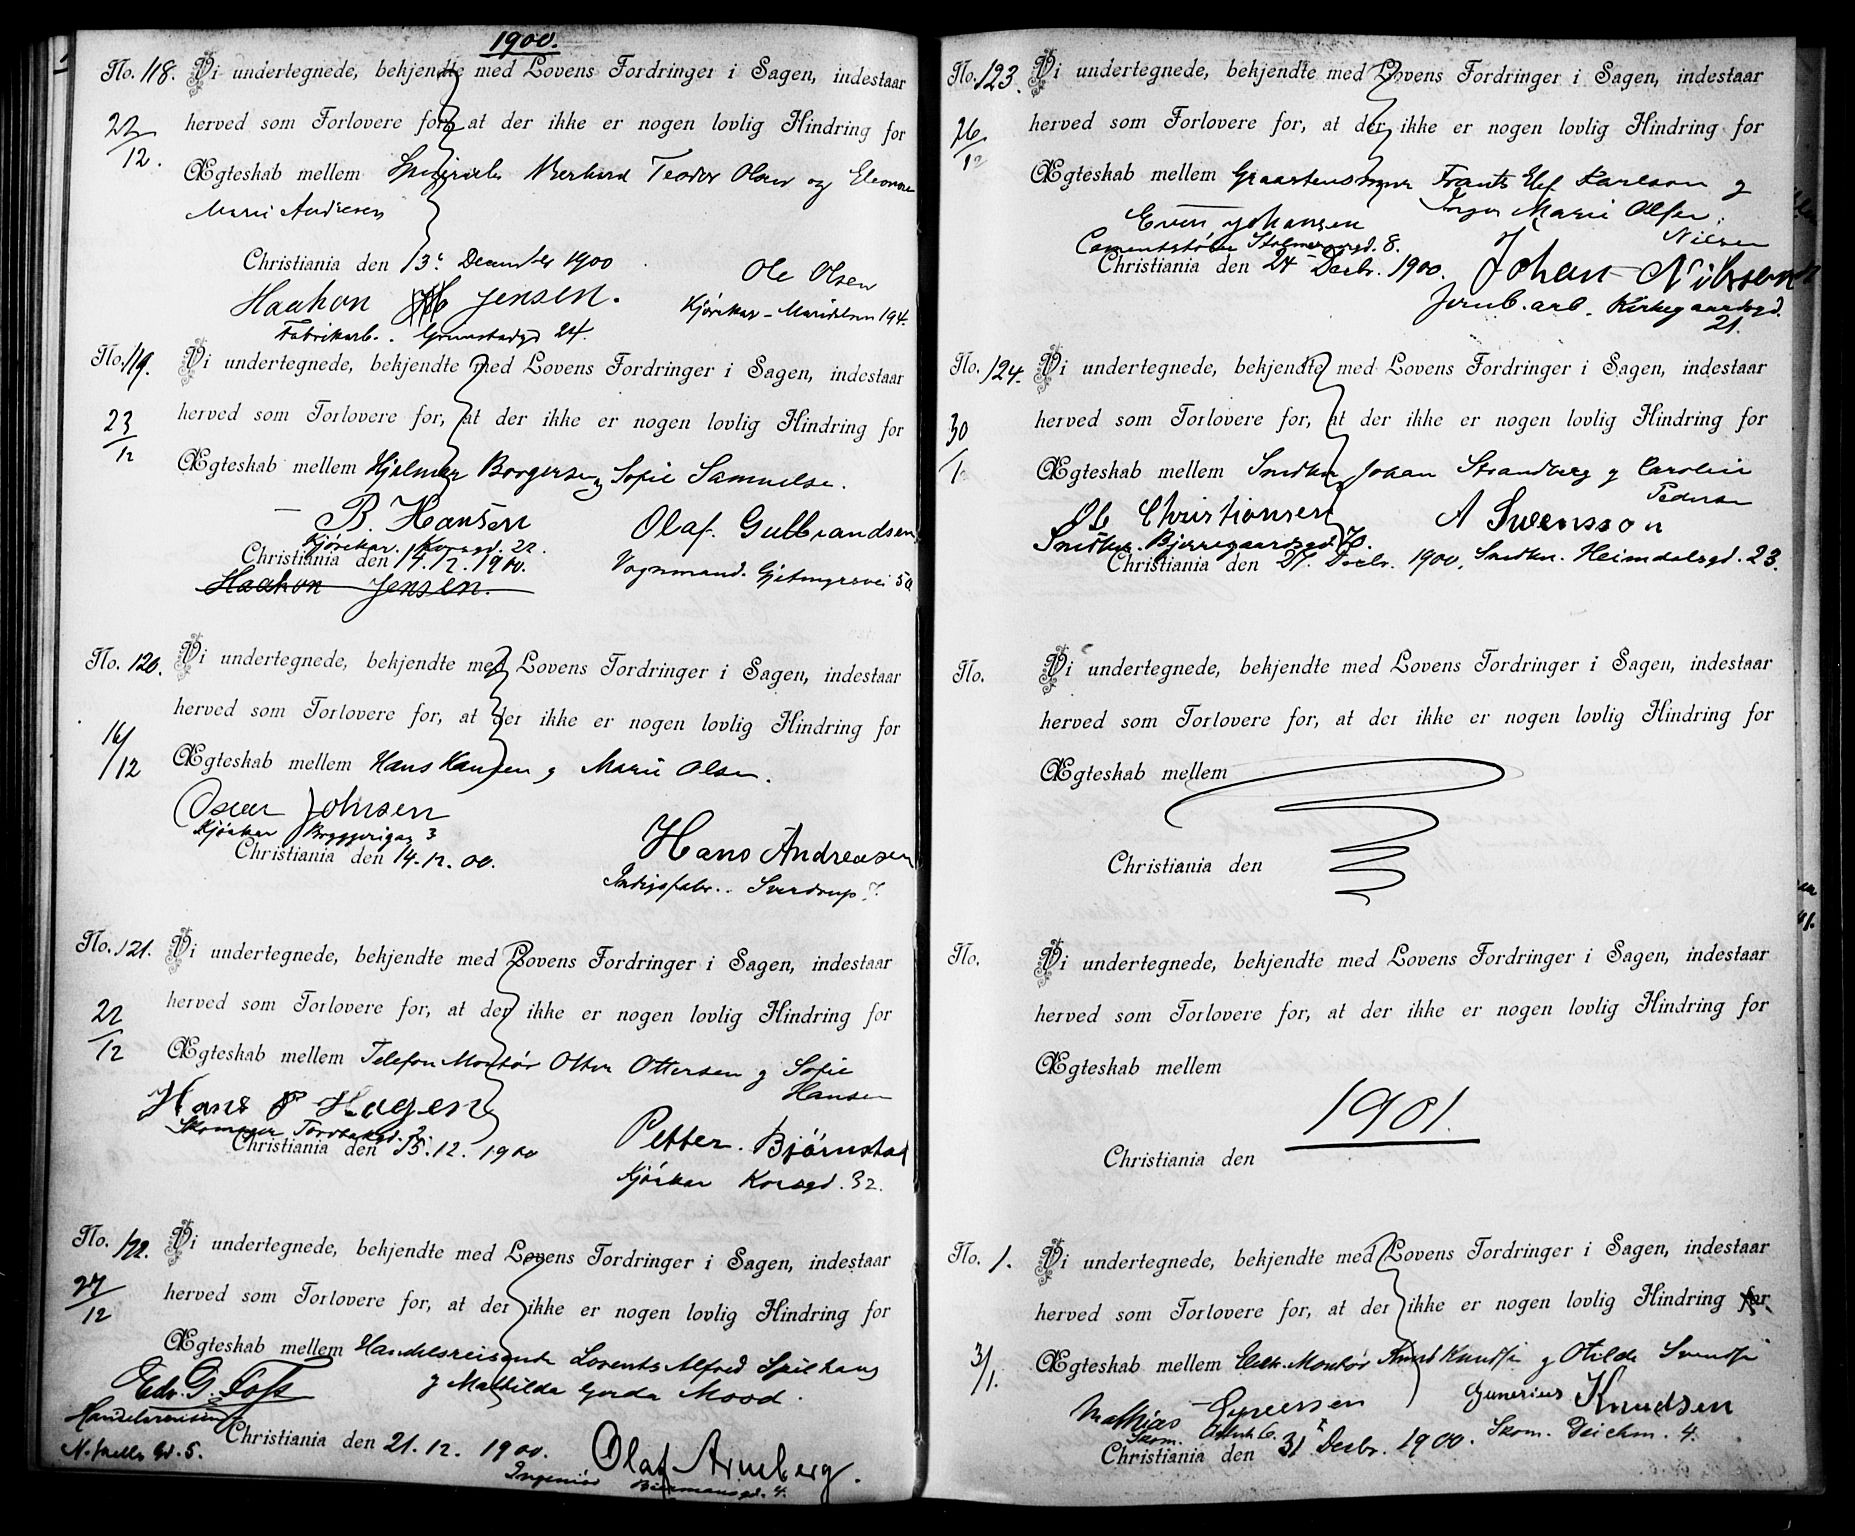 1900.
No. 118. Vi undertegnede, bekjendte med Lovens Fordringer i Sagen, indestaar
22/12. herved som Forlovere for, at der ikke er nogen lovlig Hindring for
Ægteskab mellem Bernhard Teodor Olsen og Eleonore
Marie Andresen
Christiania den 13. December 1900
Haakon Jensen. Ole Olsen
Fabrikarb. Grimstadgd 24. Kjørekar - Maridalsvn 194.
No. 119. Vi undertegnede, bekjendte med Lovens Fordringer i Sagen, indestaar
23/12 herved som Forlovere for, at der ikke er nogen lovlig Hindring for
Ægteskab mellem Hjalmar Borgersen og Sofie Samuelse.
B. Hansen Olaf Gulbrandsen
Kjørekar. Korsgd. 22.
Christiania den 14.12.1900. Vognmand.
Haakon Jensen.
No. 120. Vi undertegnede, bekjendte med Lovens Fordringer i Sagen, indestaar
16/12 herved som Forlovere for, at der ikke er nogen lovlig Hindring for
Ægteskab mellem Hans Hansen og Marie Olsen.
Oscar Johnsen
Kjørekar Bryggerigag 3 Hans Andreasen
Christiania den 14.12.00.
No. 121. Vi undertegnede, bekjendte med Lovens Fordringer i Sagen, indestaar
22/12 herved som Forlovere for, at der ikke er nogen lovlig Hindring for
Ægteskab mellem Telefon Montør Otto Ottersen og Sofie
Hansen
Hans P Hagen
Christiania den 15.12.1900 Petter Bjørnstad
Kjørekar Korsgd. 32.
No. 122. Vi undertegnede, bekjendte med Lovens Fordringer i Sagen, indestaar
27/12 herved som Forlovere for, at der ikke er nogen lovlig Hindring for
Ægteskab mellem Handelsreisende Lorentz Alfred Spilhaug
og Mathilde Gerda Mood.
Edv. G. Foss
Handelsreisende
Christiania den 21.12.1900. Olaf Arneberg.
Ingeniør
No. 123. Vi undertegnede, bekjendte med Lovens Fordringer i Sagen, indestaar
26/12 herved som Forlovere for, at der ikke er nogen lovlig Hindring for
Ægteskab mellem Frants Karlson og
Inga Marie Olsen.
Even Johansen
Cementstøber
Christiania den 24 Decbr. 1900. Johan Nilsen
Jernb. arb. Kirkegaardsgd.
21.
No. 124. Vi undertegnede, bekjendte med Lovens Fordringer i Sagen, indestaar
30/1 herved som Forlovere for, at der ikke er nogen lovlig Hindring for
Ægteskab mellem Snedker Johan Strandberg og Caroline
Pedersen
Ole Christiansen A Svensson
Snedker. Bjerregaardsgd 70.
Christiania den 27. Decbr. 1900. Snedker. Heimdalsgd. 23.
No. Vi undertegnede, bekjendte med Lovens Fordringer i Sagen, indestaar
herved som Forlovere for, at der ikke er nogen lovlig Hindring for
Ægteskab mellem
Christiania den
No. Vi undertegnede, bekjendte med Lovens Fordringer i Sagen, indestaar
herved som Forlovere for, at der ikke er nogen lovlig Hindring for
Ægteskab mellem
1901.
Christiania den
No. 1. Vi undertegnede, bekjendte med Lovens Fordringer i Sagen, indestaar
herved som Forlovere for, at der ikke er nogen lovlig Hindring for
3/1. Ægteskab mellem Elektr. Montør Knudsen og Otilde Svendsen
Mathias Gunerius Knudsen
Skom. Skom. Deichm. 4.
Christiania den 31 Decbr. 1900.